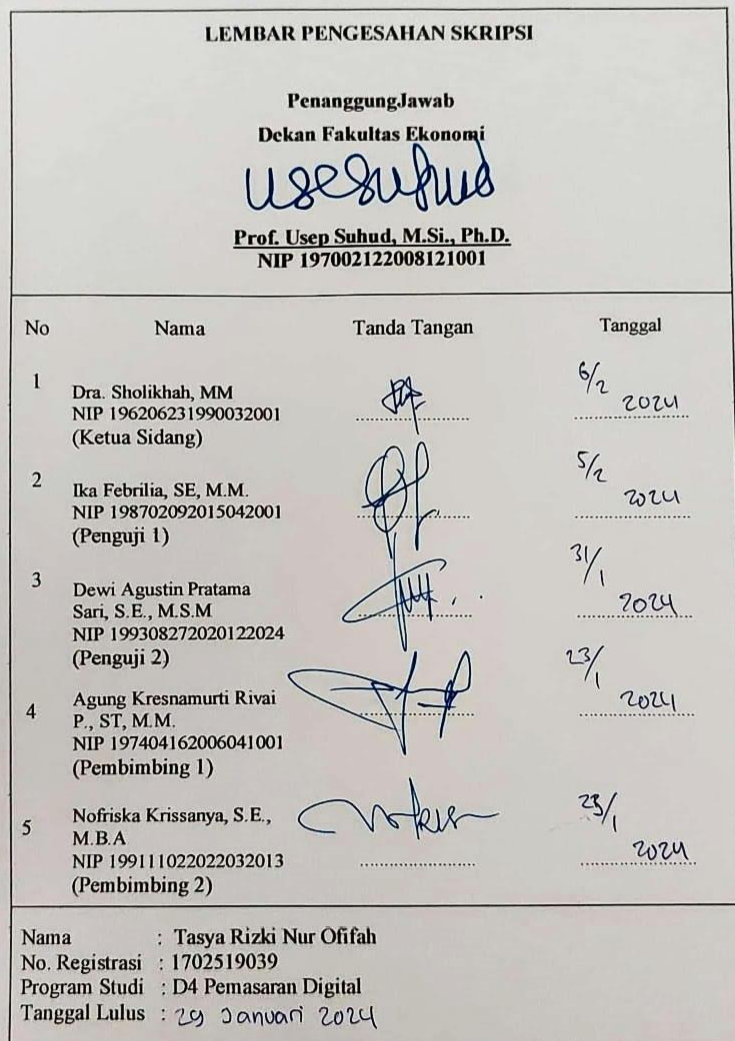 LEMBAR PENGESAHAN SKRIPSI
PenanggungJawab
Dekan Fakultas Ekonomi
usesuhud
Prof. Usep Suhud, M.Si., Ph.D.
NIP 197002122008121001
No Nama Tanda Tangan Tanggal
1 Dra. Sholikhah, MM 6/2
NIP 196206231990032001 2024
(Ketua Sidang)
2 Ika Febrilia, SE, M.M. 5/2
NIP 198702092015042001 2024
(Penguji 1)
3 Dewi Agustin Pratama 31/1
Sari, S.E., M.S.M 2024
NIP 199308272020122024
(Penguji 2)
4 Agung Kresnamurti Rivai 23/1
P., ST, M.M. 2024
NIP 197404162006041001
(Pembimbing 1)
5 Nofriska Krissanya, S.E., 23/1
M.B.A 2024
NIP 199111022022032013
(Pembimbing 2)
Nama : Tasya Rizki Nur Ofifah
No. Registrasi : 1702519039
Program Studi : D4 Pemasaran Digital
Tanggal Lulus : 29 Januari 2024